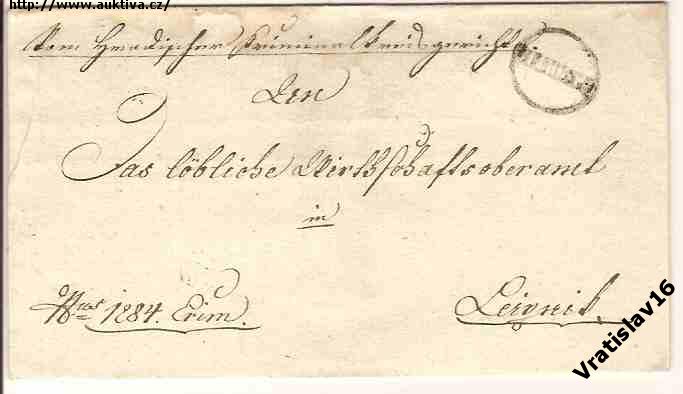 http://www.auktiva.cz/
Vom Hradischer Kriminalkreisgerichte.
An
Das löbliche Wirthschaftsoberamt
in
Nus 1284. Crim.
Leipnik.
Vratislav16